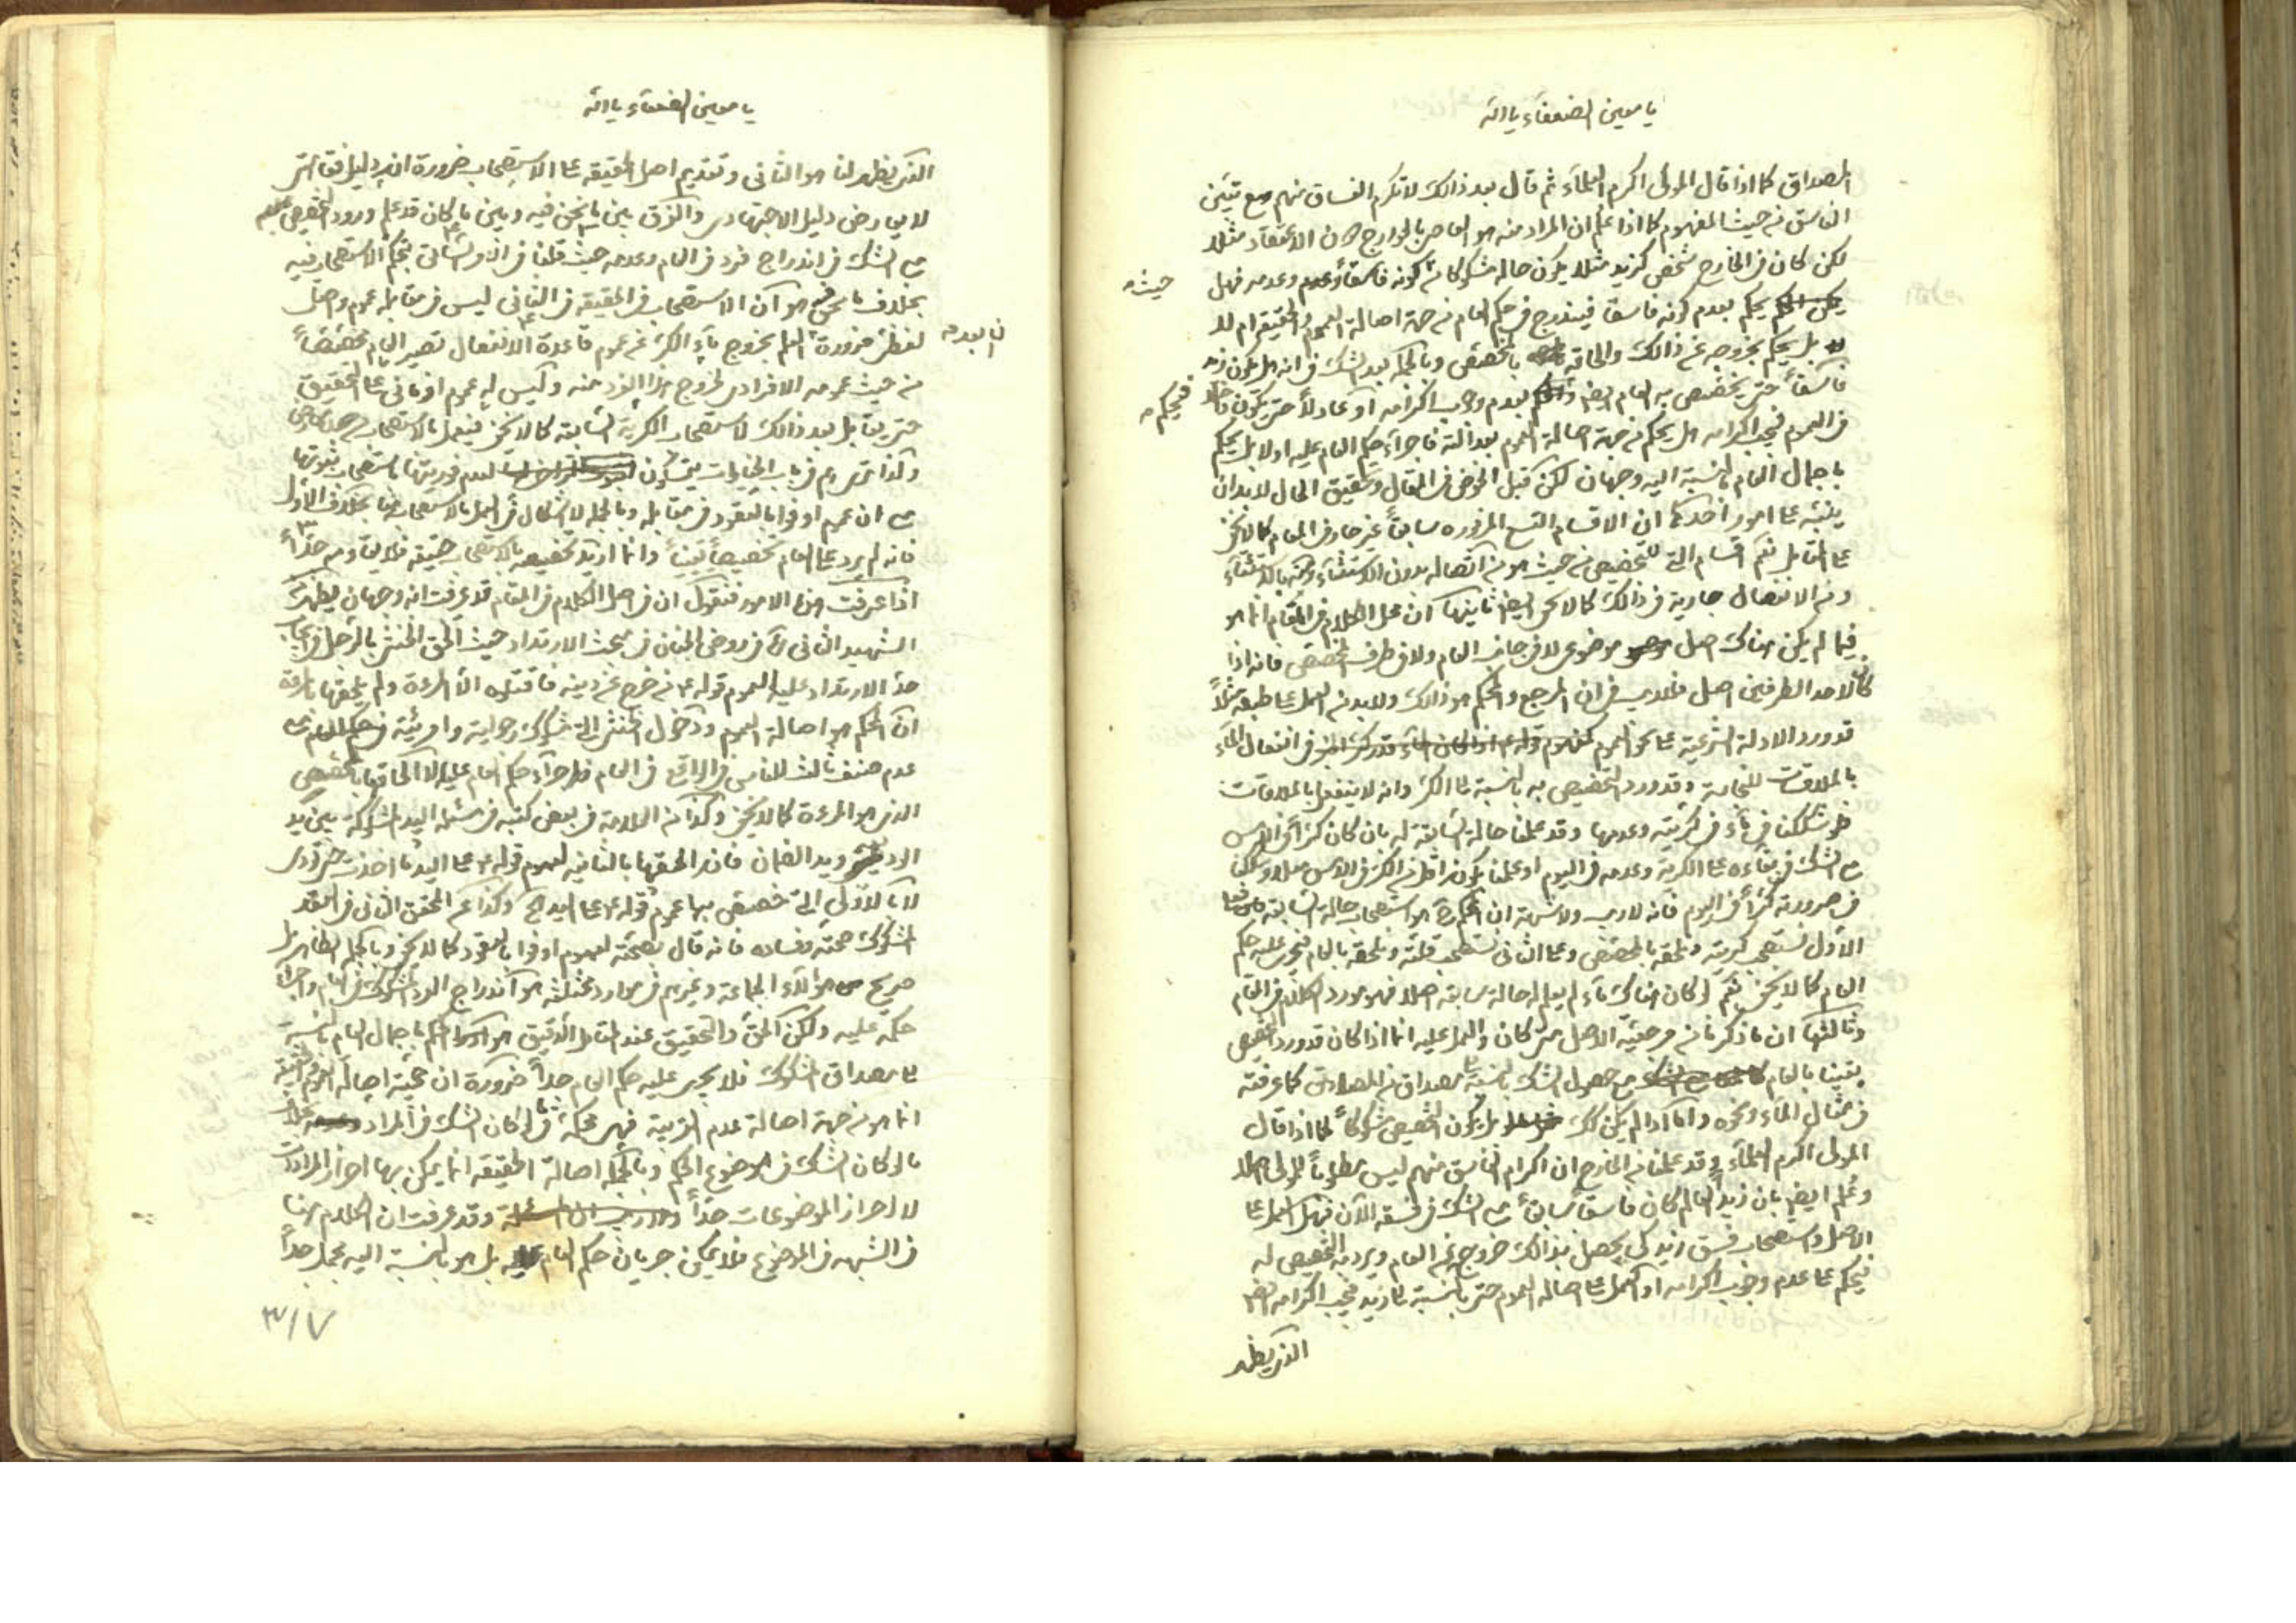 يا معين الضعفاء يا الله
المصداق كما اذا قال المولى اكرم العلماء ثم قال بعد ذالك لا تكرم الفساق منهم مع تبيّن
الفاسق من حيث المفهوم كما اذا علم ان المراد منه هو العاصى بالجوارح دون الاعتقاد مثلا
لكن كان فى الخارج شخص كزيد مثلا يكون حاله مشكوكا من كونه فاسقاً وعدمه فهل
حينئذ
يحكم بعدم كونه فاسقا فيندرج فى حكم العام من جهة اصالة العموم والحقيقه ام لا
بل يحكم بخروجه عن ذالك والحاقه بالمخصص وبالجمله بعد الشك فى انه هل يكون
فاسقاً حتى يخصص به العام ايضا بعدم وجوب اكرامه او عادلاً حتى يكون داخلا
فيحكم
فى العموم فيجب اكرامه هل يحكم من جهة اصالة العموم بعدالته فاجراء حكم العام عليه اولا بل يحكم
باجمال العام بالنسبة اليه وجهان لكن قبل الخوض فى المقال وتحقيق الحال لا بد ان
ينبّه على امور احدها ان الاقسام التسع المزبوره سابقاً غير جار فى المقام كما لا يخفى
على المتامل نعم اقسام التخصيص من حيث هو من اتصاله بدون الاستثناء ومنه بالاستثناء
ومن الانفصال جارية فى ذالك كما لا يخفى ايضا ثانيها ان محل الكلام فى المقام انما هو
فيما لم يكن هناك اصل موضوعى لا فى جانب العام ولا فى طرف المخصص فانه اذا
كان لاحد الطرفين اصل فلا ريب فى ان المرجع والمحكم هو ذالك ولا بد من العمل على طبقه مثلاً
قد ورد الادلة الشرعية على نحو العموم فى انفعال الماء
بالملاقات للنجاسة وقد ورد التخصيص به بالنسبة الى الكر وانه لا ينفعل بالملاقات
فلو شككنا فى ماء فى كريته وعدمها وقد علمنا حالة السابقة له بان كان كراً فى الامس
مع الشك فى بقاءه على الكرية وعدمه فى اليوم او علمنا بكونه اقل من الكر فى الامس مثلا وشككنا
فى صرورته كراً فى اليوم فانه لا ريب ولا شبهة ان الحكم هو استصحاب حالة السابقة
الاول نستصحب كريته ونلحقه بالمخصص وعلى الثانى نستصحب قلته ونلحقه بالعام فيجرى عليه حكم
العام كما لا يخفى نعم لو كان هناك ماء لم يعلم له حالة سابقه اصلا فهو مورد الكلام فى المقام
وثالثها ان ما ذكرنا من مرجعية الاصل متى كان والعمل عليه انما اذا كان قد ورد التخصيص
يقينا بالعام مع حصول الشك بالنسبة الى مصداق من المصاديق كما عرفته
فى مثال الماء ونحوه واما اذا لم يكن كك بل يكون التخصيص مشكوكاً كما اذا قال
المولى اكرم العلماء وقد علمنا من الخارج ان اكرام الفاسق منهم ليس مطلوباً للمولى اصلا
وعُلم ايضا بان زيداً العالم كان فاسقاً سابقاً مع الشك فى فسقه الآن فهل العمل على
الاصل واستصحاب فسق زيد كى يحصل بذالك خروجه عن العام ويرد به التخصيص له
فيحكم على عدم وجوب اكرامه او العمل على اصالة العموم حتى بالنسبة الى زيد فيجب اكرامه ايضا
الذى يظهر
يا معين الضعفاء يا الله
الذى يظهر لنا هو الثانى وتقديم اصل الحقيقه على الاستصحاب ضرورة انه دليل فقاهتى
لا يعارض دليل الاجتهادى والفرق بين ما نحن فيه وبين ما كان قد علم ورود التخصيص عليه
مع الشك فى اندراج فرد فى العام وعدمه حيث قلنا فى الاول بحكم الاستصحاب فيه
بخلاف ما نحن فيه هو ان الاستصحاب فى الحقيقه فى الثانى ليس فى مقابله عموم واصل
لفظى ضرورة ان بعد العلم بخروج ماء الكر عن عموم قاعدة الانفعال تصير العام مخصّصاً
من حيث عمومه الافرادى لخروج هذا الفرد منه وليس له عموم ازمانى على التحقيق
حتى يقابل بعد ذالك لاستصحاب الكرية السابقه كما لا يخفى فيعمل بالاستصحاب
وكذا تريهم فى باب الخيارات يتمسكون لعدم فوريتها باستصحاب ثبوتها
مع ان عموم اوفوا بالعقود فى مقابله وبالجمله لا اشكال فى العمل بالاستصحاب هنا بخلاف الاول
فانه لم يرد على العام تخصيصاً يقيناً وانما اريد تخصيصه بالاستصحاب حقيقه فلا يقاومه جدّاً
اذا عرفت هذه الامور فنقول ان فى اصل الكلام فى المقام قد عرفت انه وجهان يظهر من
الشهيد الثانى ره فى روض الجنان فى مبحث الارتداد حيث الحق الخنثى بالرجل فى اجراء
حد الارتداد عليه لعموم قوله ع من خرج عن دينه فاقتلوه الا المرءة ولم يلحقها بالمرءة
ان الحكم هو اصالة العموم ودخول الخنثى التى شك رجوليته وامرئيته فى حكم العام بنى على
عدم صنف ثالث للناس فى الواقع فى العام فاجراء حكم العام عليه لا الحاقها بالمخصص
الذى هو المرءة كما لا يخفى وكذا من العلامة فى بعض كتبه فى مسئلة اليد المشكوكة بين يد
ويد الضمان فانه الحقها بالثانيه لعموم قوله ع على اليد ما اخذت حتى تؤدى
لا بالاولى التى خصّص بها عموم قوله ع على اليد اه وكذا عن المحقق الثانى فى العقد
المشكوك صحته وفساده فانه قال بصحته لعموم اوفوا بالعقود كما لا يخفى وبالجمله الظاهر بل
صريح هؤلاء الجماعة وغيرهم فى موارد مختلفه هو اندراج الفرد المشكوك فى العام واجراء
حكمه عليه ولكن الحق والتحقيق عند التامل الدقيق هو الحكم باجمال العام بالنسبة
الى مصداق المشكوك فلا يجرى عليه حكم العام جداً ضرورة ان حجية اصالة العموم والحقيقه
انما هو من جهة اصالة عدم القرينة فهى محكمة فيما لو كان الشك فى المراد
ما لو كان الشك فى موضوع الحكم وبالجمله اصالة الحقيقه انما يمكن بها احراز المرادات
لا احراز الموضوعات جداً وقد عرفت ان الكلام هنا
فى الشبهه فى الموضوع فلا يمكن جريان حكم العام عليه بل هو بالنسبة اليه مجمل جداً
٣١٧